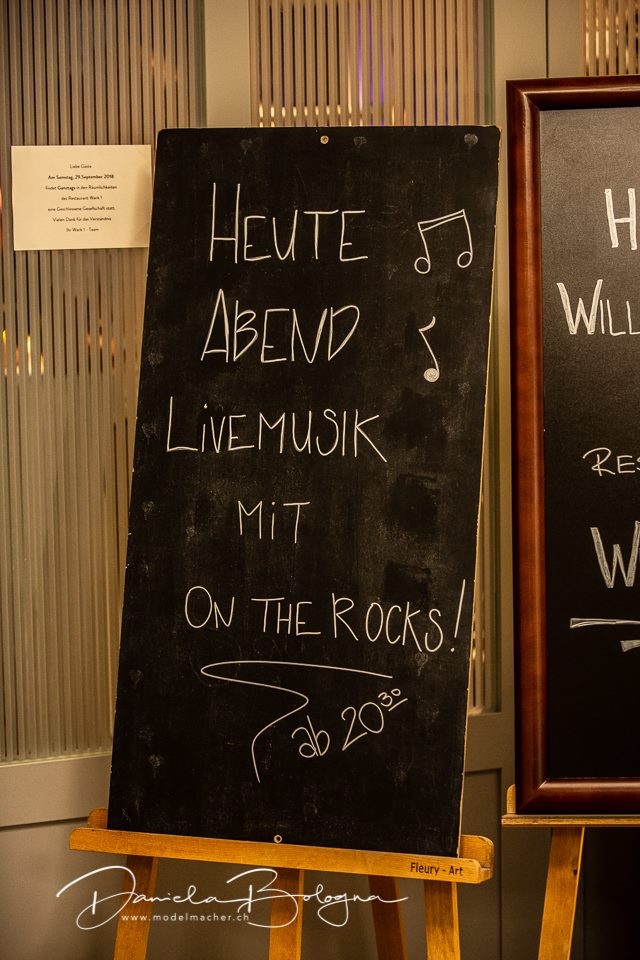 Liebe Gäste
Am Samstag, 29. September 2018
findet Ganztags in den Räumlichkeiten
des Restaurant Werk 1
eine Geschlossene Gesellschaft statt.
Vielen Dank für das Verständnis
Ihr Werk 1 - Team
HEUTE
ABEND
LiVEMUSIK
MiT
ON THE ROCKS!
ab 20³⁰
Fleury - Art
Daniela Bologna
www.modelmacher.ch